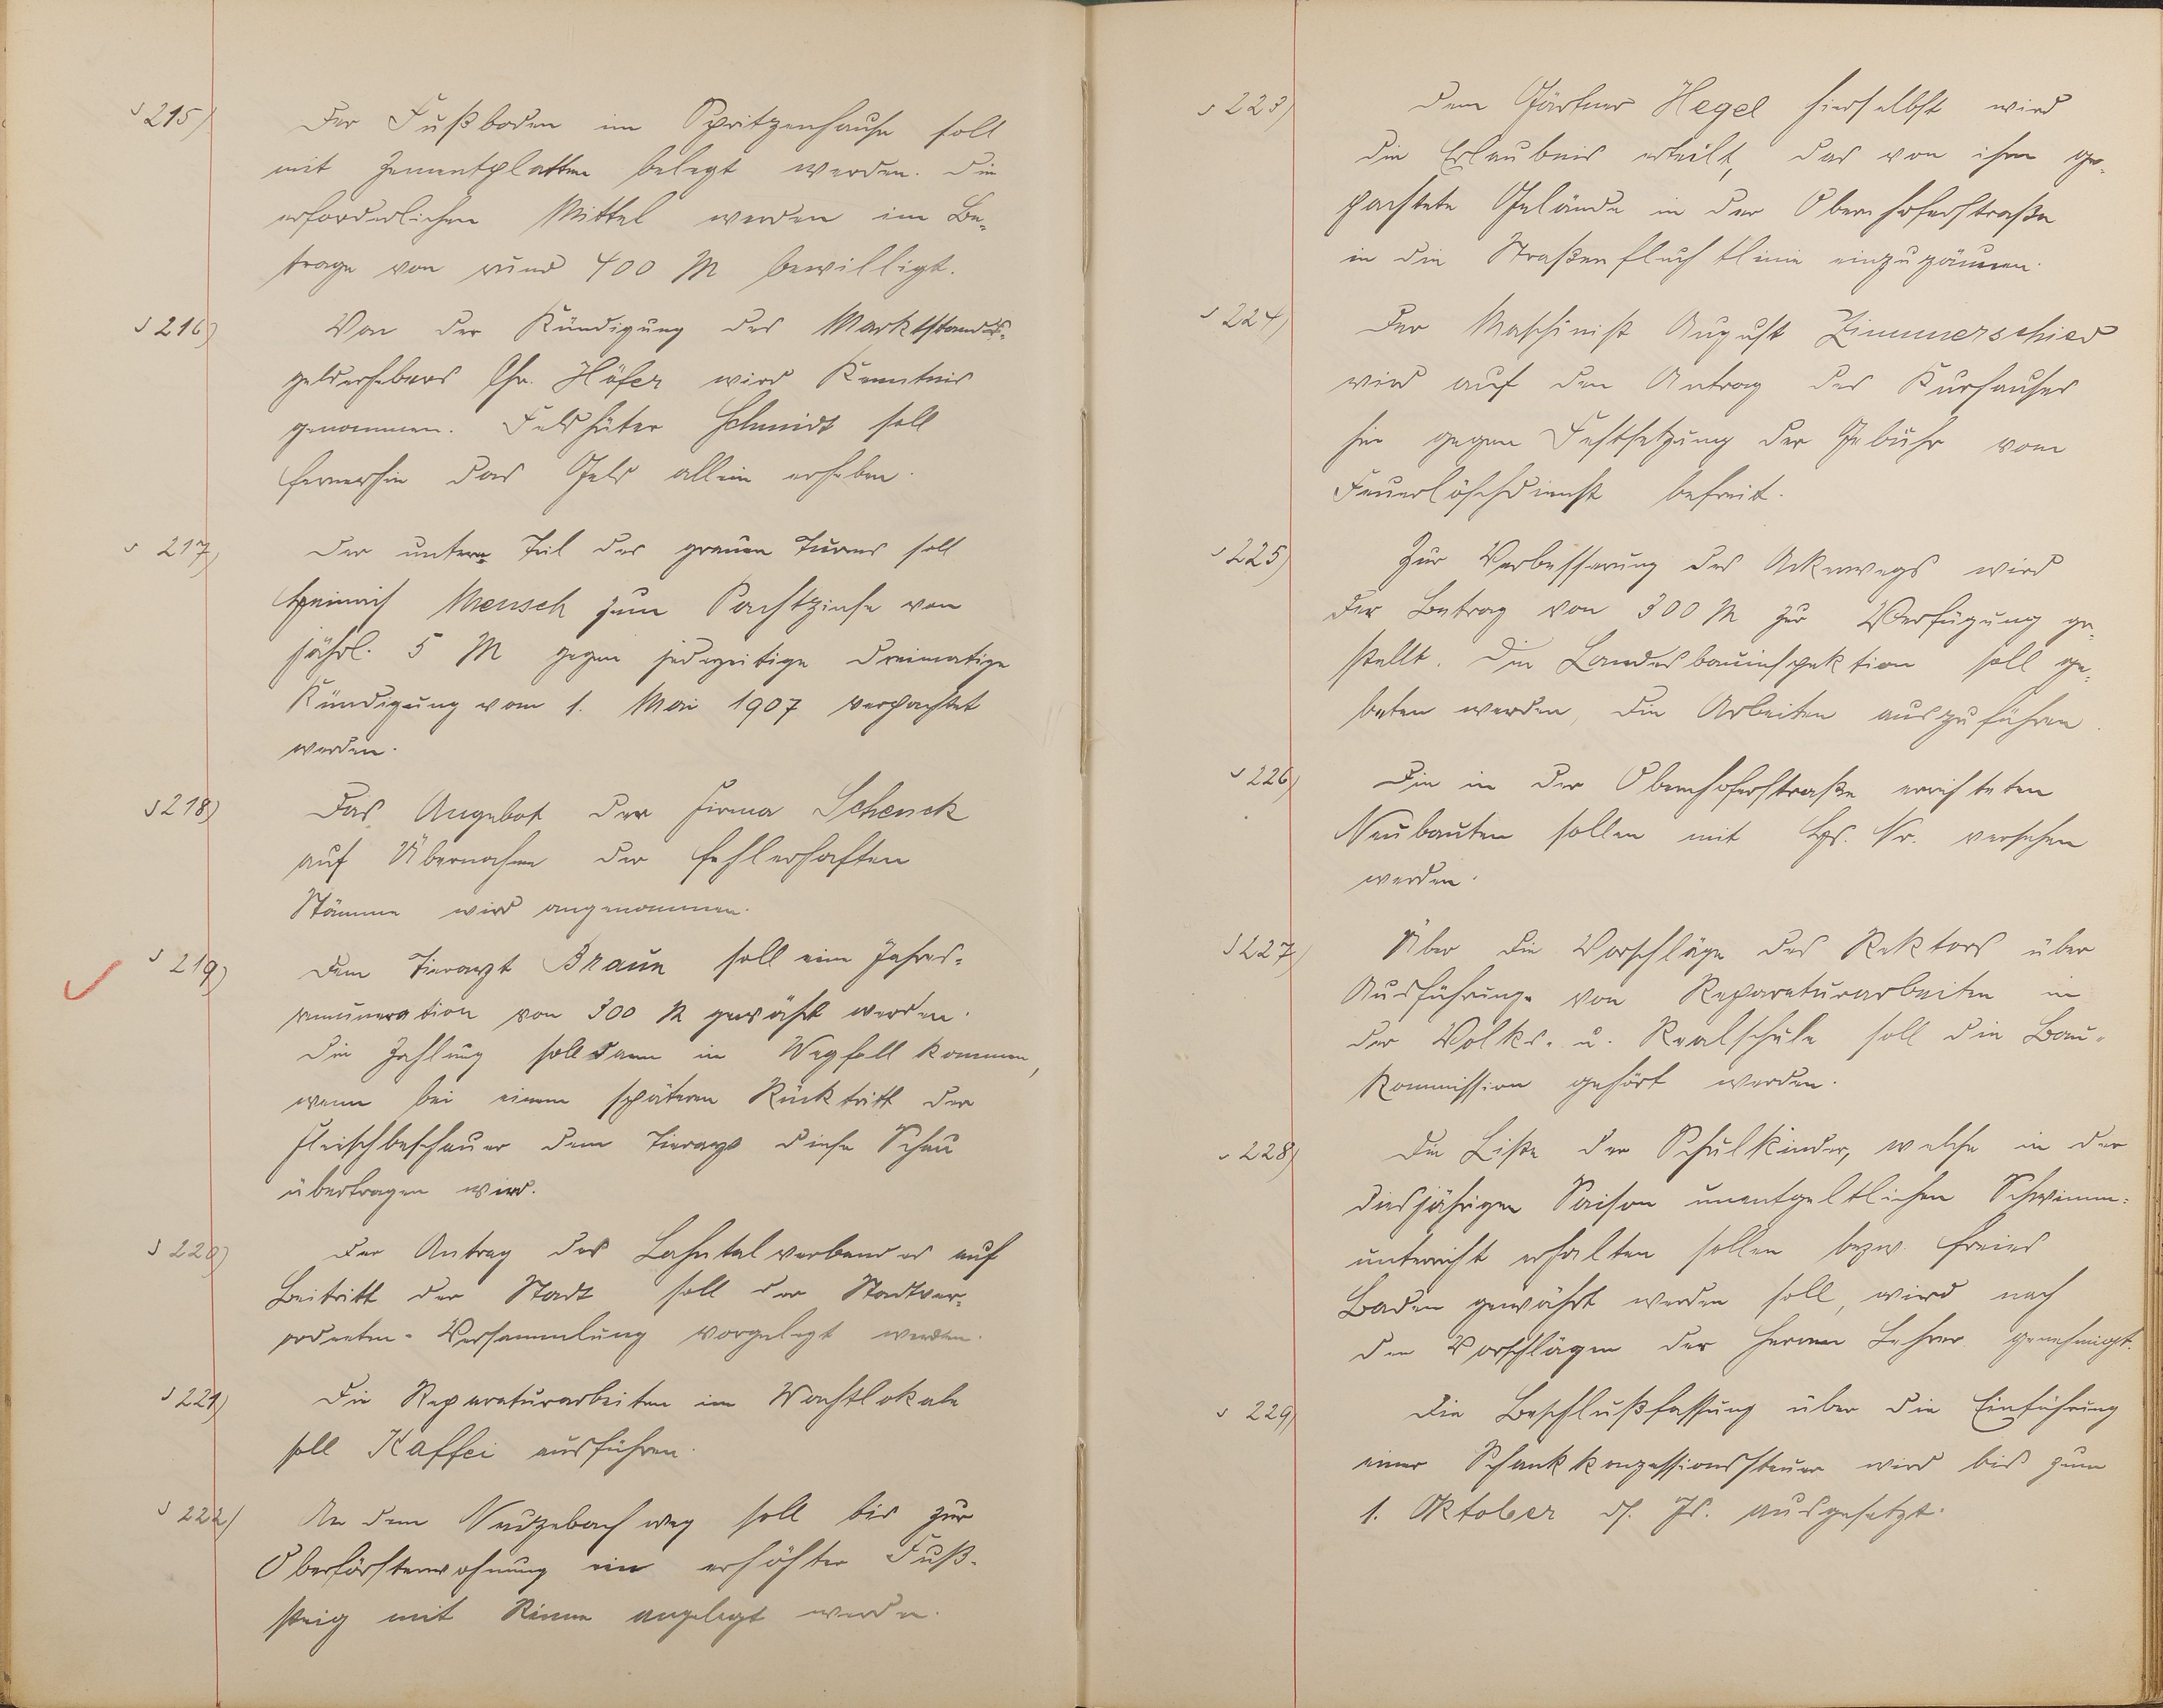 § 215) Der Fußboden im Spritzenhause soll
mit Zementplatten belegt werden. Die
erforderlichen Mittel werden im Be-
trage von rund 400 M bewilligt.
§ 216) Von der Kündigung des Marktstands-
gelderhebers Chr. Höfer wird Kenntnis
genommen. Feldhüter Schmidt soll
fernerhin das Geld allein erheben.
§ 217) Der untere Teil des grauen Turms soll
Heinrich Mensch zum Pachtzinse von
jährl. 5 M gegen jederzeitige dreimonatige
Kündigung vom 1. Mai 1907 verpachtet
werden.
§ 218) Das Angebot der Firma Schenck
auf Übernahme der fehlerhaften
Stämme wird angenommen.
§ 219) Dem Tierarzt Braun soll eine Jahres-
remuneration von 300 M gewährt werden.
Die Zahlung soll dann in Wegfall kommen,
wenn bei einem späteren Rücktritt der
Fleischbeschauer dem Tierarzt diese Schau
übertragen wird.
§ 220) Der Antrag des Lahntalverbandes auf
Beitritt der Stadt soll der Stadtver-
ordneten-Versammlung vorgelegt werden.
§ 221) Die Reparaturarbeiten im Wachtlokale
soll Kaffei ausführen.
§ 222) An dem Neuzebachweg soll bis zur
Oberförsterwohnung ein erhöhter Fuß-
steig mit Rinne angelegt werden.
§ 223) Dem Gärtner Hegel hierselbst wird
die Erlaubnis erteilt, das von ihm ge-
pachtete Gelände in der Obernhoferstraße
in die Straßenfluchtlinie einzuzäunen.
§ 224) Der Maschinist August Zimmerschied
wird auf den Antrag des Kurhauses
hin gegen Festsetzung der Gebühr vom
Feuerlöschdienst befreit.
§ 225) Zur Verbesserung des Ackerwegs wird
der Betrag von 300 M zur Verfügung ge-
stellt. Die Landesbauinspektion soll ge-
beten werden, die Arbeiten auszuführen.
§ 226) Die in der Obernhoferstraße errichteten
Neubauten sollen mit Hs. Nr. versehen
werden.
§ 227) Über die Vorschläge des Rektors über
Ausführung von Reparaturarbeiten in
der Volks- u. Realschule soll die Bau-
kommission gehört werden.
§ 228) Die Liste der Schulkinder, welche in der
diesjährigen Saison unentgeltlichen Schwimm-
unterricht erhalten sollen bezw. freies
Baden gewährt werden soll, wird nach
den Vorschlägen der Herren Lehrer genehmigt.
§ 229) Die Beschlußfassung über die Einführung
einer Schankkonzessionssteuer wird bis zum
1. Oktober ds. Js. ausgesetzt.